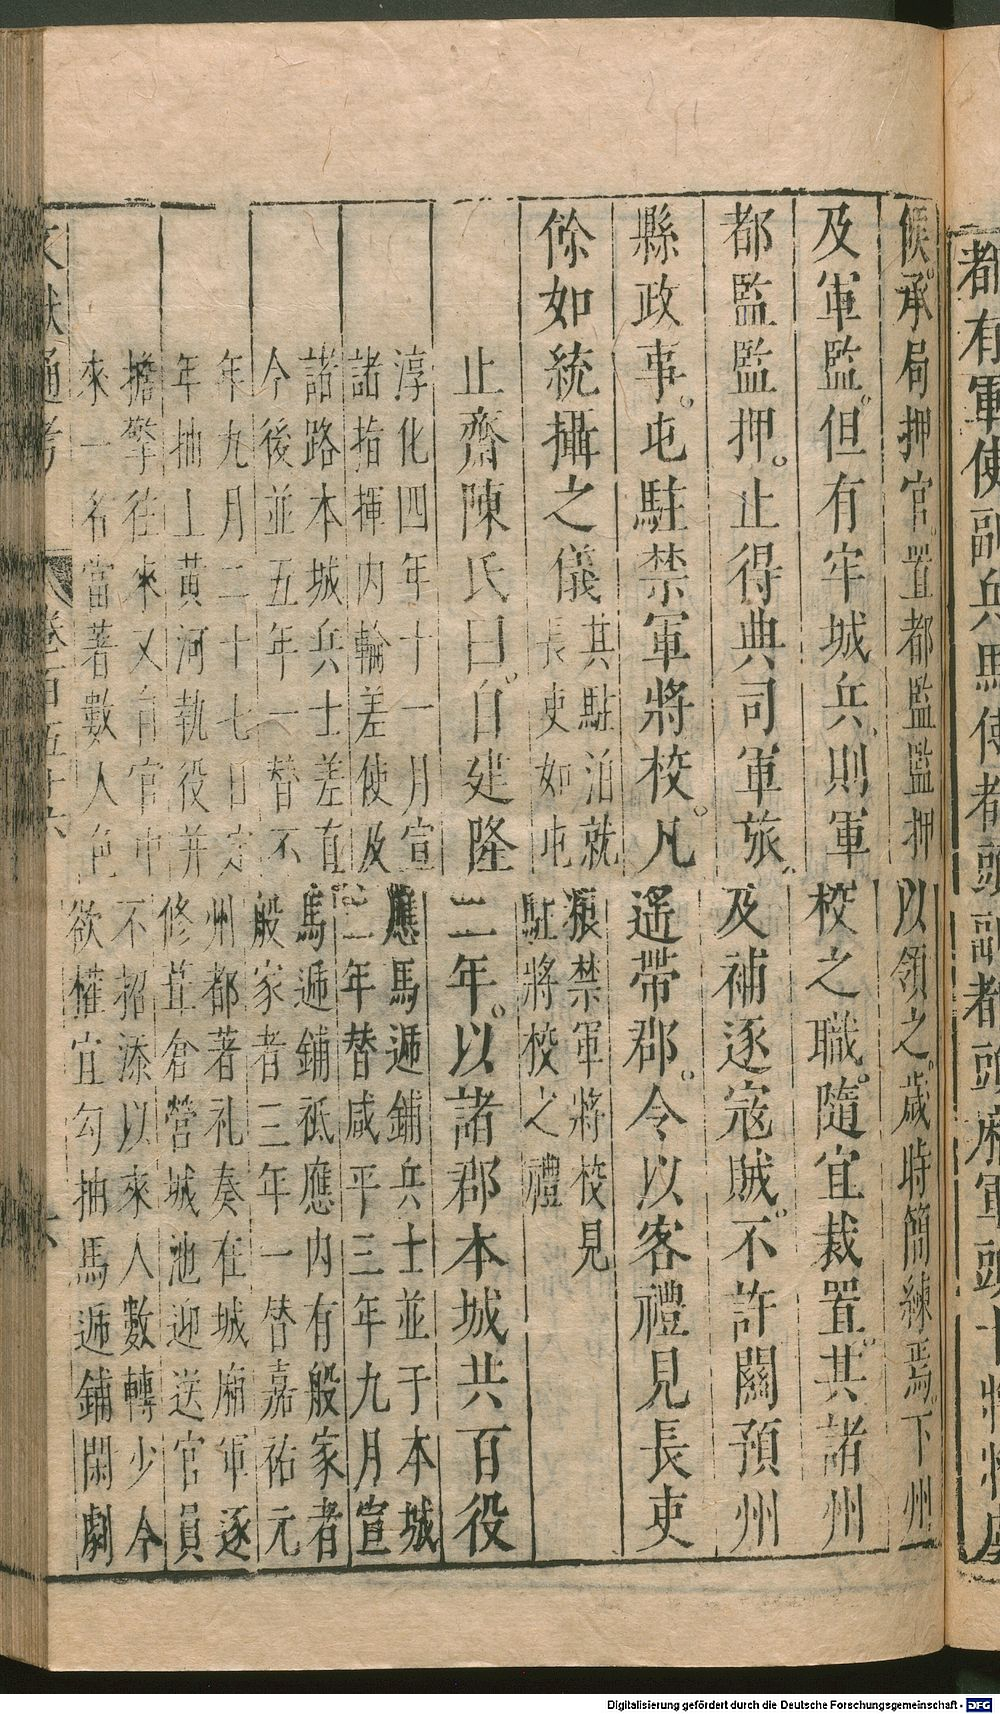 都有軍使副兵馬使都頭副都頭廂軍頭十將將虞
候承局押官。置都監監押以領之。歲時簡練焉。下州
及軍監。但有牢城兵、則軍校之職。隨宜裁置。其諸州
都監監押。止得典司軍旅、及補逐寇賊。不許關預州
縣政事。屯駐禁軍將校。凡遥帶郡。令以客禮見長吏
餘如統攝之儀
其駐泊就粮禁軍將校見
長吏如屯駐將校之禮
止齋陳氏曰。自建隆二年。以諸郡本城共百役
淳化四年十一月宣應馬遞鋪兵士並于本城
諸指揮内輪差使及二年替咸平三年九月宣
諸路本城兵士差直馬遞鋪祗應内有般家者
今後並五年一替不般家者三年一替嘉祐元
年九月二十七日定州都著札奏在城廂軍逐
年抽上黃河執役并修葺倉營城池迎送官員
擔擎往來又自官中不招添以來人數轉少今
來一名當著數人色欲權宜勾抽馬遞鋪閑劇
文獻通考 卷百五十六 六
Digitalisierung gefördert durch die Deutsche Forschungsgemeinschaft - DFG